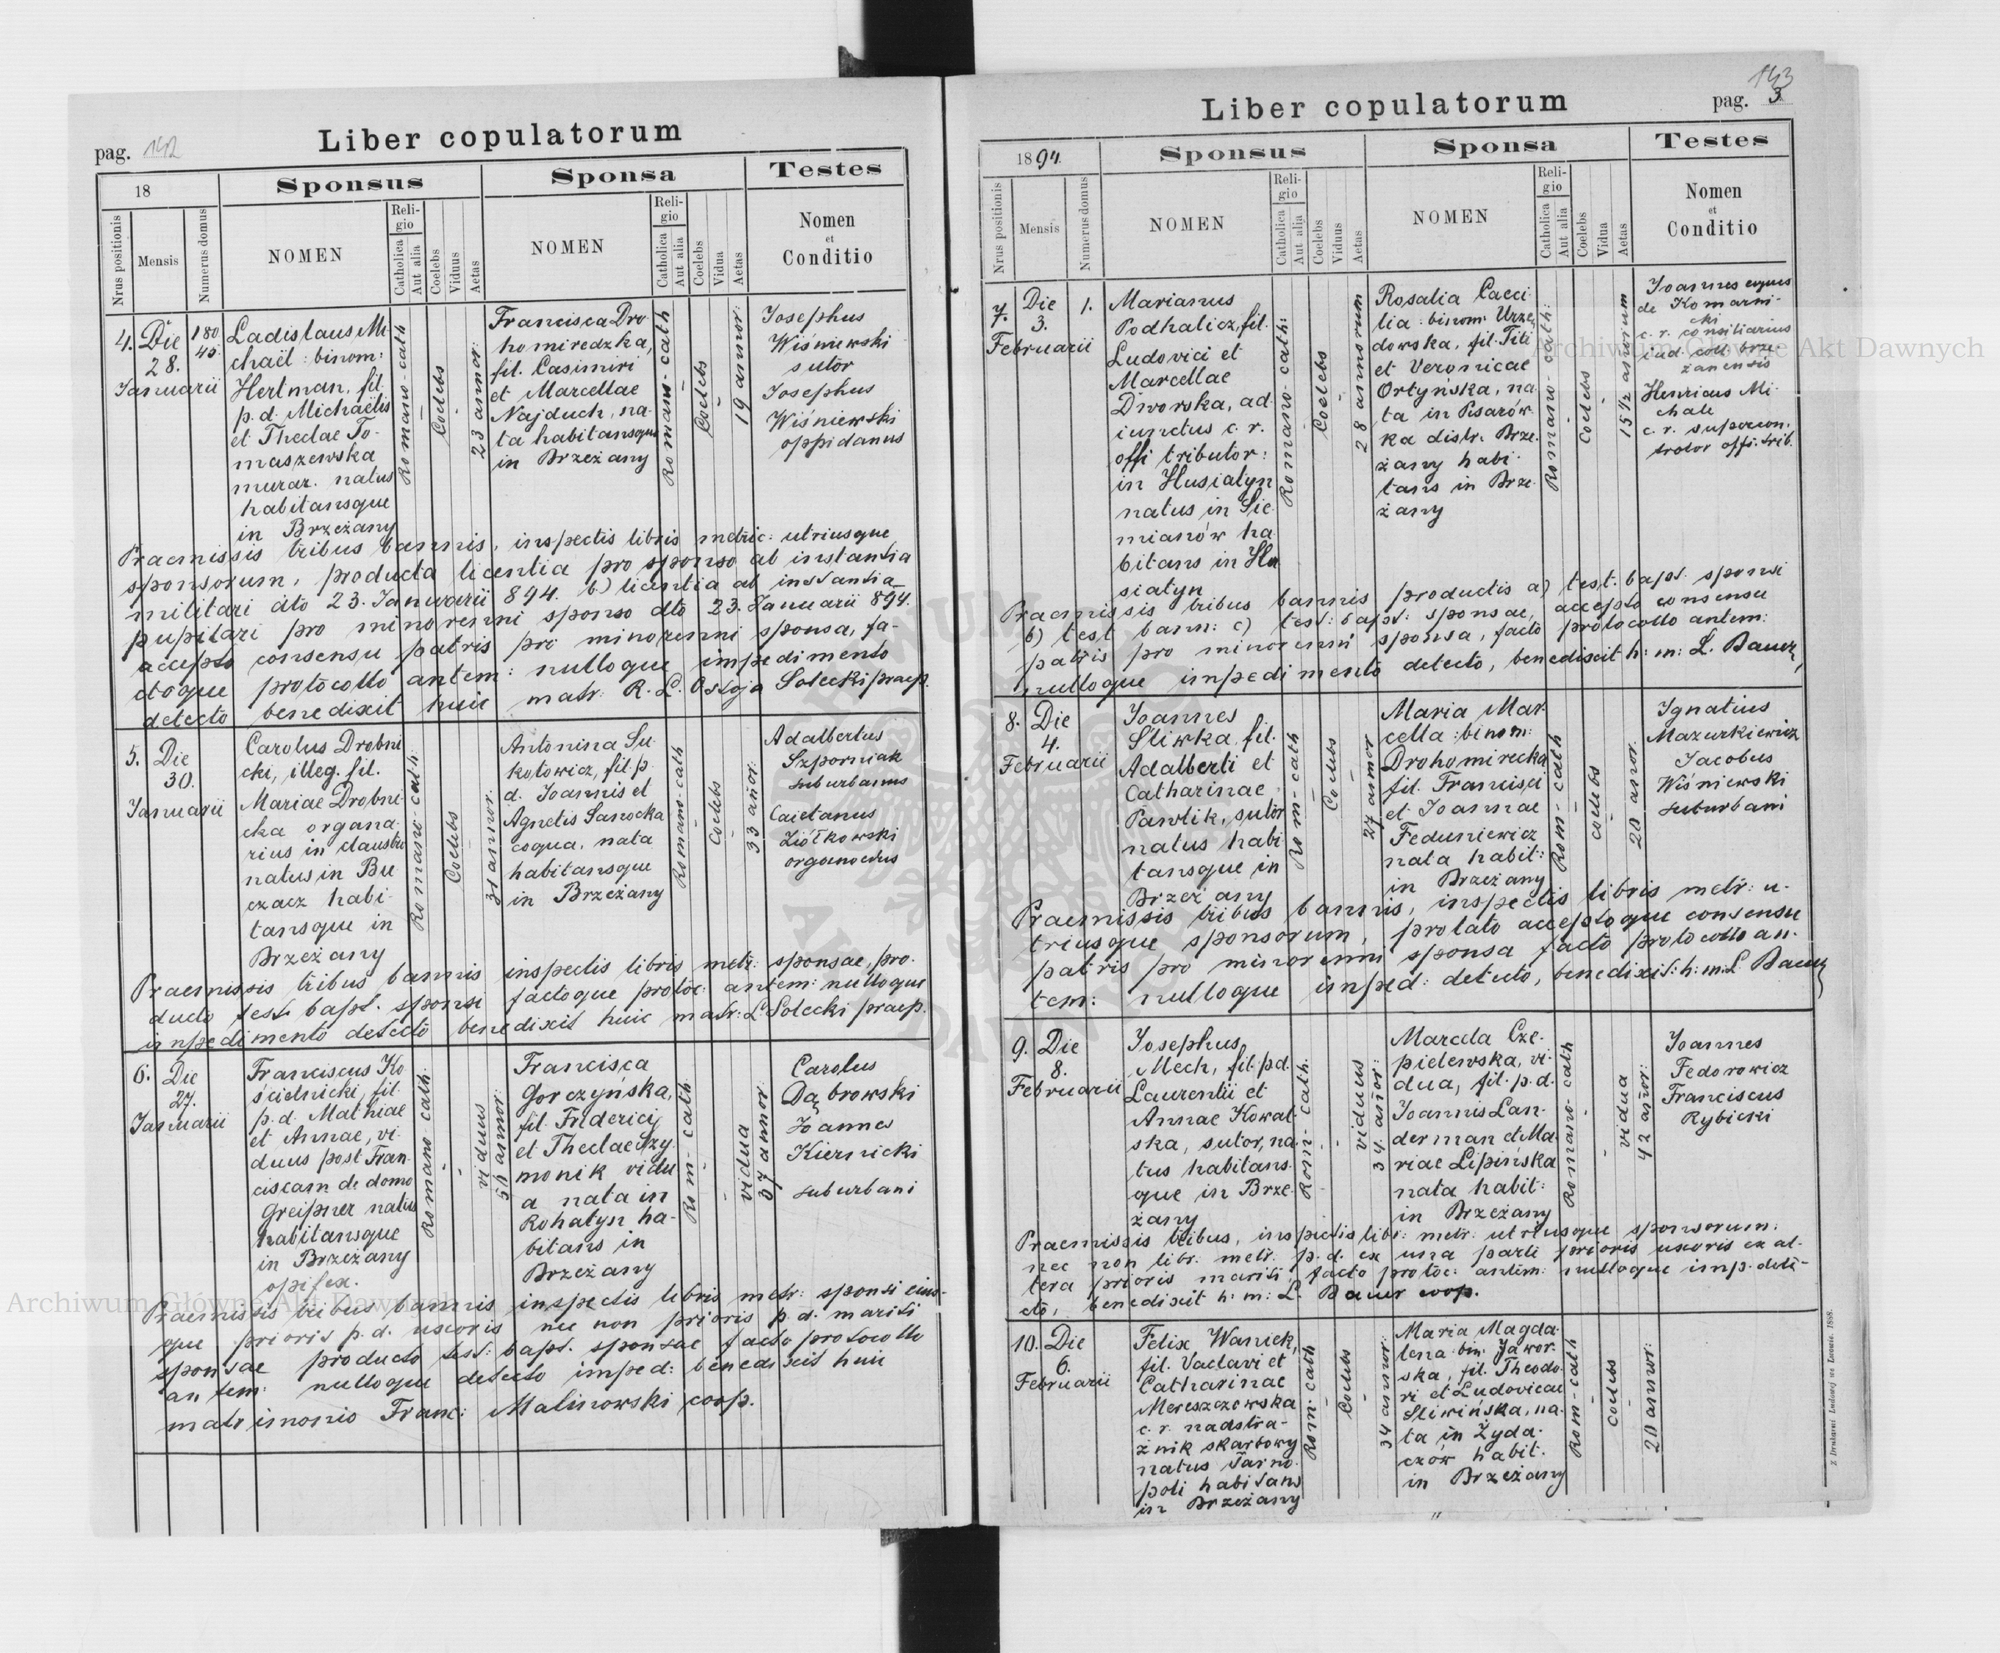 pag. 142
Liber copulatorum
18
Sponsus
Sponsa
Testes
Nrus positionis
Mensis
Numerus domus
NOMEN
Religio
Catholica
Aut alia
Coelebs
Viduus
Aetas
NOMEN
Religio
Catholica
Aut alia
Coelebs
Vidua
Aetas
Nomen
et
Conditio
4. Die
28.
Januarii
180
45.
Ladislaus Mi
chaël: binom:
Hertman, fil.
p. d. Michaëlis
et Theclae To-
maszewska
murar. natus
habitansque
in Brzeżany
Romano-cath
Coelebs
23 annor:
Francisca Dro-
homiredzka,
fil. Casimiri
et Marcellae
Najduch, na-
ta habitansque
in Brzeżany
Romano-cath
Coelebs
19 annor:
Josephus
Wisniewski
sutor
Josephus
Wiśniewski
oppidanus
Praemissis tribus bannis, inspectis libris metric: utriusque
sponsorum, producta licentia pro sponso ab instantia
militari dto 23. Januarii 894. b) licentia ab instantia
pupilari pro minorenni sponso dto 23. Januarii 894.
accepto consensu patris pro minorenni sponsa, fa-
ctoque protocollo antem: nulloque impedimento
detecto benedixit huic matr: R. L. Ostoja Solecki praep.
5. Die
30.
Januarii
Carolus Drobni
cki, illeg. fil.
Mariae Drobni-
cka organa-
rius in claustro
natus in Bu
czacz habi-
tansque in
Brzeżany
Romano-cath:
Coelebs
31 annor:
Antonina Su-
kotowicz, fil. p.
d. Joannis et
Agnetis Sanocka
coqua, nata
habitansque
in Brzeżany
Romano-cath
Coelebs
33 añor:
Adalbertus
Szporniak
suburbanus
Caietanus
Ziółkowski
organoedus
Praemissis tribus bannis inspectis libris metr: sponsae, pro-
ducto test: bapt. sponsi factoque protoc: antem: nulloque
impedimento detecto benedixit huic matr: L. Solecki praep.
6. Die
27.
Januarii
Franciscus Ko
ścielnicki, fil.
p. d. Mathiae
et Annae, vi-
duus post Fran-
ciscam de domo
Greipner natus
habitansque
in Brzeżany
opifex.
Romano-cath:
viduus
54 annor:
Francisca
Gorczyńska,
fil. Friderici
et Theclae Szy-
monik vidu
a nata in
Rohatyn ha-
bitans in
Brzeżany
Rom-cath
vidua
37 annor
Carolus
Dąbrowski
Joannes
Kiernicki
suburbani
Praemissis tribus bannis inspectis libris metr: sponsi eius-
que prioris p. d. uxoris nec non prioris p. d. mariti
sponsae producto test: bapt. sponsae facto protocollo
antem: nulloque detecto imped: benedixit huic
matrimonio Franc: Malinowski coop.
143
pag. 3
Liber copulatorum
1894.
Sponsus
Sponsa
Testes
Nrus positionis
Mensis
Numerus domus
NOMEN
Religio
Catholica
Aut alia
Coelebs
Viduus
Aetas
NOMEN
Religio
Catholica
Aut alia
Coelebs
Vidua
Aetas
Nomen
et
Conditio
7. Die
3.
Februarii
1.
Marianus
Podhalicz, fil.
Ludovici et
Marcellae
Dworska, ad-
iunctus c. r.
offi tributor:
in Husiatyn
natus in Sie
mianów ha
bitans in Hu
siatyn
Romano-cath:
Coelebs
28 annorum
Rosalia Caeci-
lia: binom: Urzę
dowska, fil. Titi
et Veronicae
Ortyńska, na-
ta in Pisarów-
ka distr: Brze-
żany habi-
tans in Brze-
żany
Romano-cath:
Coelebs
15 1/2 annorum
Joannes eques
de Komarni-
cki
c. r. consiliarius
iud. coll. brze-
żanensis
Henricus Mi-
chale
c. r. supercon-
trolor offi. trib.
Praemissis tribus bannis productis a) test. bapt. sponsi
b) test bann: c) test: bapt: sponsae, accepto consensu
patris pro minorenni sponsa, facto protocollo antem:
nulloque impedimento detecto, benedixit h: m: L. Bauer,
8. Die
4.
Februarii
Joannes
Sliwka, fil.
Adalberti et
Catharinae
Pawlik, sutor
natus habi
tansque in
Brzeżany
Rom-cath
Coelebs
27 annor
Maria Mar-
cella: binom:
Drohomirecka
fil. Francisci
et Joannae
Feduniewicz
nata habit:
in Brzeżany
Rom-cath
coelebs
20 annor.
Ignatius
Mazurkiewicz
Jacobus
Wiśniewski
suburbani
Praemissis tribus bannis, inspectis libris metr: u-
triusque sponsorum, prolato acceptoque consensu
patris pro minorenni sponsa facto protocollo an-
tem: nulloque imped: detecto, benedixit: h: m: L. Bauer,
9. Die
8.
Februarii
Josephus
Mech, fil. p.d.
Laurentii et
Annae Kowal-
ska, sutor, na-
tus habitans-
que in Brze-
żany
Rom-cath:
viduus
34 añor:
Marcela Cze-
pielewska, vi-
dua, fil. p. d.
Joannis Lan-
derman et Ma-
riae Lipińska
nata habit:
in Brzeżany
Romano-cath
vidua
42 añor:
Joannes
Fedorowicz
Franciscus
Rybicki
Praemissis tribus, inspectis libr: metr: utriusque sponsorum:
nec non libr: metr: p. d. ex una parte prioris uxoris ex al-
tera prioris mariti, facto protoc: antem: nulloque imp. dete-
cto, benedixit h: m: L. Bauer coop.
10. Die
6.
Februarii
Felix Wanick,
fil. Vaclavi et
Catharinae
Mereszczewska
c. r. nadstra-
żnik skarbowy
natus Tarno-
poli habitans
in Brzeżany
Rom-cath
Coelebs
34 annor:
Maria Magda-
lena bin: Jawor-
ska, fil. Theodo-
ri et Ludovicae
Sliwińska, na-
ta in Żyda-
czów habit.
in Brzeżany
Rom-cath
coelebs
20 annor:
Z Drukarni Ludowej we Lwowie. 1888.
Archiwum Główne Akt Dawnych
Archiwum Główne Akt Dawnych